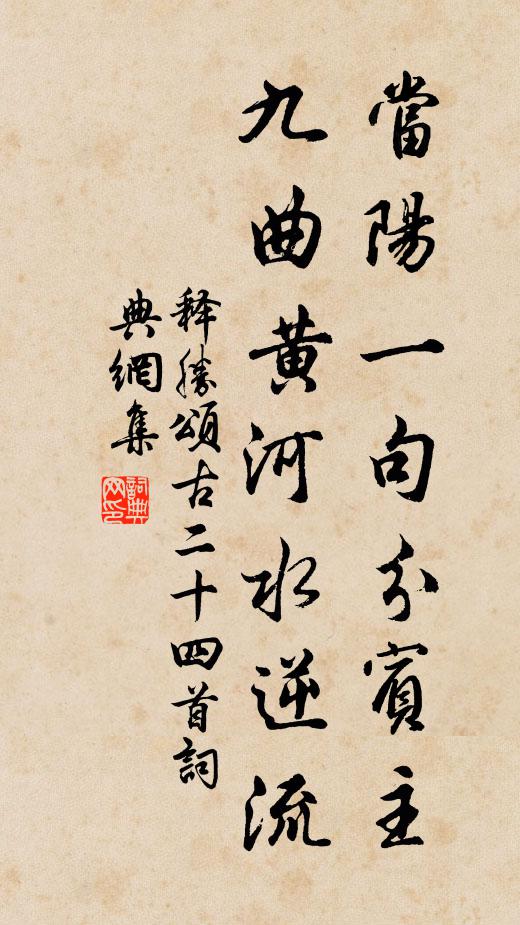 當陽一句分賓主
九曲黃河水逆流
释勝頌古二十四首詞
典網集
詞典網印